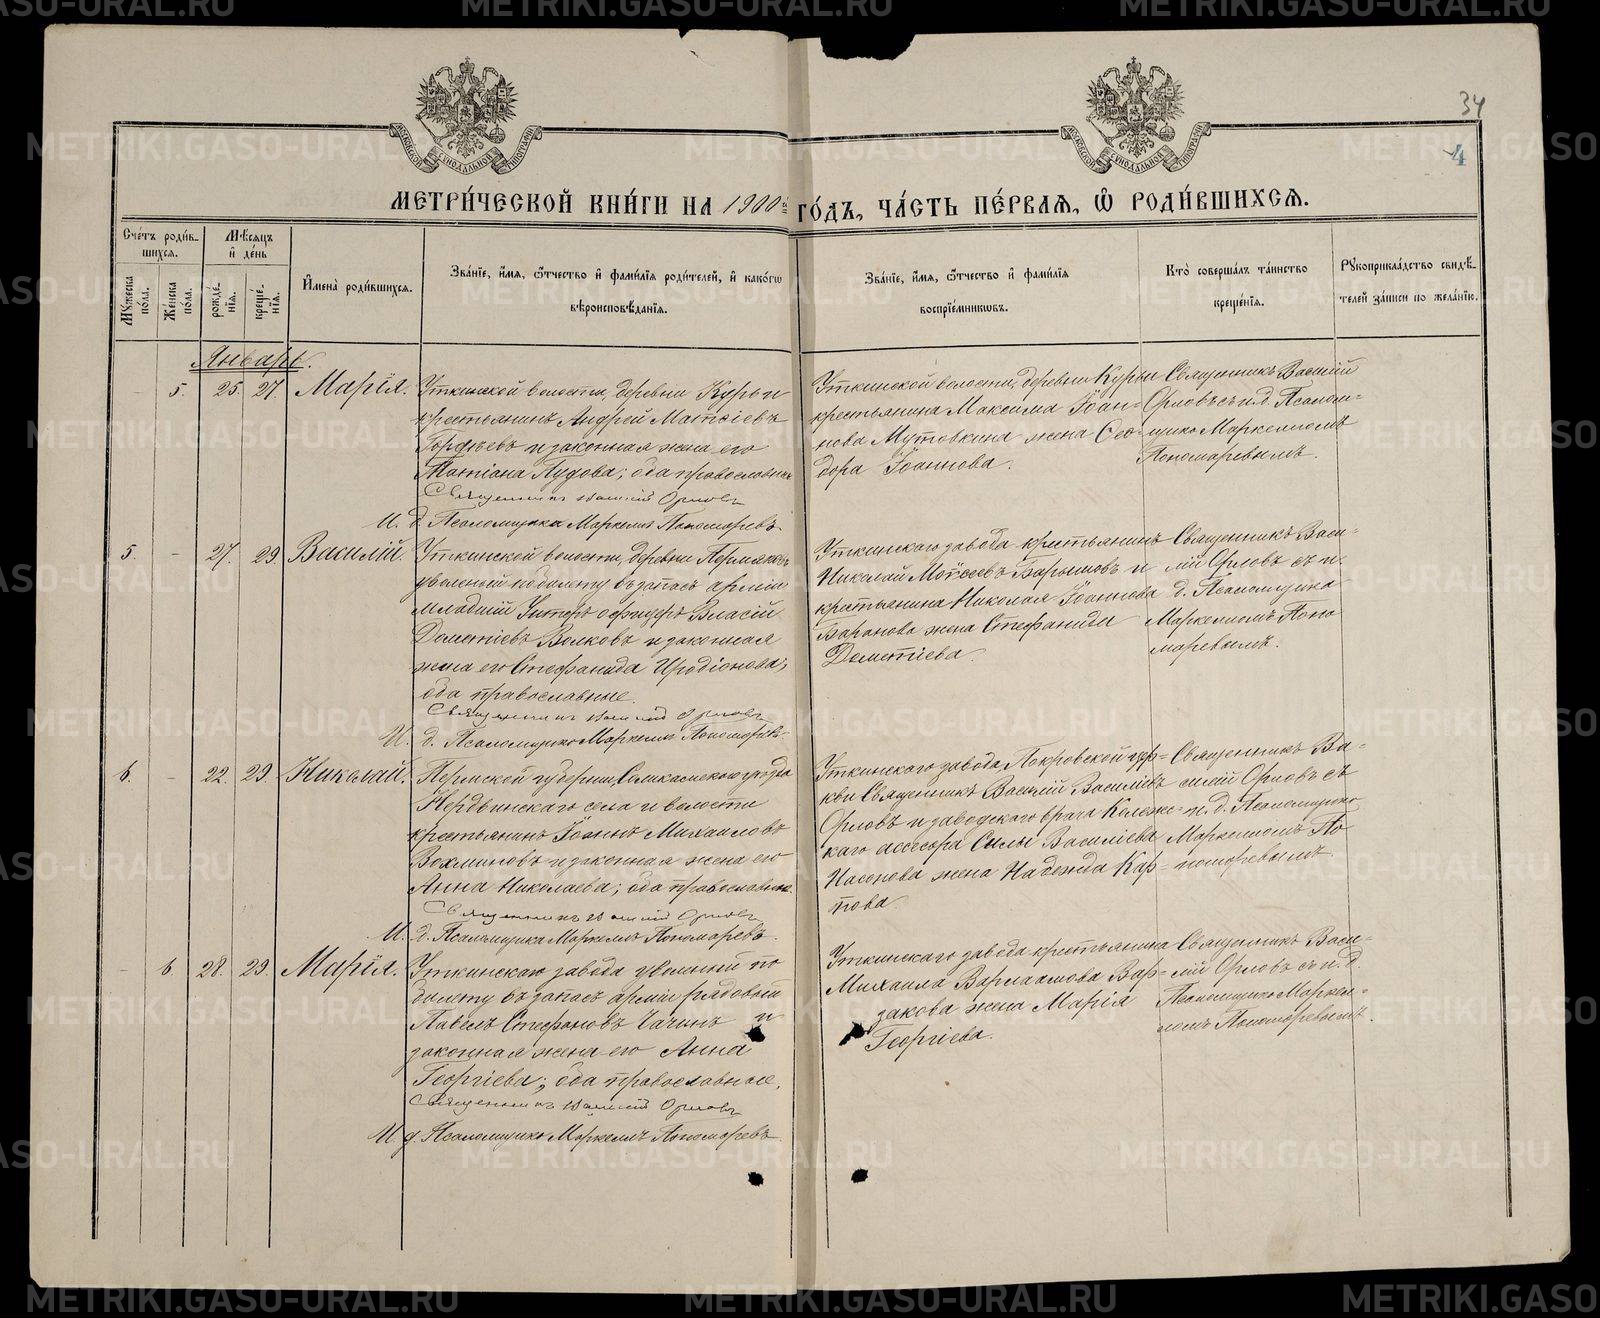 34
4
МОСКОВСКОЙ СѴНОДАЛЬНОЙ ТИПОГРАФІИ
МОСКОВСКОЙ СѴНОДАЛЬНОЙ ТИПОГРАФІИ
МЕТРИ́ЧЕСКОЙ КНИ́ГИ НА 1900й ГО́ДЪ, ЧА́СТЬ ПЕ́РВАЯ, Ѡ РОДИ́ВШИХСЯ.
Сче́тъ роди́в-
шихся.
Му́жеска по́ла.
Же́нска по́ла.
Мѣ́сяцъ
и де́нь
рожде́нїя.
креще́нїя.
И҆мена̀ роди́вшихся.
Зва́нїе, и҆́мя, ѻ҆́тчество и҆ фами́лїя роди́телей, и҆ како́гѡ
вѣроисповѣ́данїя.
Зва́нїе, и҆́мя, ѻ҆́тчество и҆ фами́лїя
воспрїе́мникѡвъ.
Кто̀ соверша́лъ та́инство
креще́нїя.
Рꙋкоприкла́дство свидѣ́-
телей за́писи по жела́нїю.
Январь.
- 5. 25. 27. Марія.
Уткинской волости, деревни Курьи
крестьянинъ Андрей Матѳіевъ
Гордѣевъ и законная жена его
Татіана Лудова; оба православные
Священникъ Василій Орловъ
И. д. Псаломщика Маркеллъ Пономаревъ.
Уткинской волости, деревни Курьи
крестьянина Максима Іоан-
нова Мутовкина жена Ѳео-
дора Іоаннова.
Священникъ Василій
Орловъ съ и. д. Псалом-
щика Маркелломъ
Пономаревымъ.
5. - 27. 29. Василій.
Уткинской волости, деревни Пермяковъ
уволенный по билету въ запасъ арміи
младшій Унтеръ офицеръ Власій
Дементіевъ Волковъ и законная
жена его Стефанида Иродіонова;
оба православные.
Священникъ Василій Орловъ
И. д. Псаломщика Маркеллъ Пономаревъ
Уткинскаго завода крестьянинъ
Николай Моѵсеевъ Барышовъ и
крестьянина Николая Іоаннова
Баранова жена Стефанида
Дементіева.
Священникъ Васи-
лій Орловъ съ и.
д. Псаломщика
Маркелломъ Поно
маревымъ.
6. - 22. 29. Николай.
Пермской губерніи, Соликамскаго уѣзда
Нердвинскаго села и волости
крестьянинъ Іоаннъ Михаиловъ
Вохминовъ и законная жена его
Анна Николаева; оба православные.
Священникъ Василій Орловъ
И. д. Псаломщика Маркеллъ Пономаревъ.
Уткинскаго завода Покровской цер-
кви Священникъ Василій Василіевъ
Орловъ и заводскаго врача Коллежс-
каго ассесора Силы Василіева
Насонова жена Надежда Кар-
пова
Священникъ Ва-
силій Орловъ съ
и. д. Псаломщика
Маркелломъ По
номаревымъ.
- 6 28. 29. Марія.
Уткинскаго завода уволенный по
билету въ запасъ арміи рядовый
Павелъ Стефановъ Чагинъ и
законная жена его Анна
Георгіева; оба православные.
Священникъ Василій Орловъ
И. д. Псаломщика Маркеллъ Пономаревъ
Уткинскаго завода крестьянина
Михаила Варлаамова Вар-
закова жена Марія
Георгіева.
Священникъ Васи-
лій Орловъ съ и. д.
Псаломщика Маркел-
ломъ Пономаревымъ.
METRIKI.GASO-URAL.RU